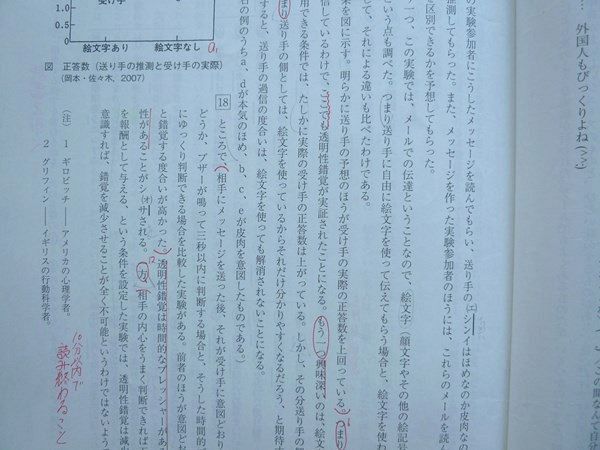 … 外国人もびっくりよね(^^)
の実験参加者にこうしたメッセージを読んでもらい、送り手の㋓シンイはほめなのか皮肉なの
推測してもらった。また、メッセージを作った実験参加者のほうには、これらのメールを読ん
区別できるかを予想してもらった。
一つ、この実験では、メールでの伝達ということなので、絵文字(顔文字やその他の絵記号
という点も調べた。つまり送り手に自由に絵文字を使って伝えてもらう場合と、絵文字を使わ
して、それによる違いも比べたわけである。
果を図に示す。明らかに送り手の予想のほうが受け手の実際の正答数を上回っている。つまり
信しているわけで、ここでも透明性錯覚が実証されたことになる。もう一つ興味深いのは、絵文
用できる条件では、たしかに実際の受け手の正答数は上がっている。しかし、その分送り手の予
まり送り手の側としては、絵文字を使っているからそれだけ分かりやすくなるだろう、と期待す
すると、送り手の過信の度合いは、絵文字を使っても解消されないことになる。
右の例のうちa、dが本気のほめ、b、c、eが皮肉を意図したものである。)
18 ところで、相手にメッセージを送った後、それが受け手に意図どおり
どうか、ブザーが鳴って三秒以内に判断する場合と、そうした時間的プ
にゆっくり判断できる場合を比較した実験がある。前者のほうが意図どお
と錯覚する度合いが高かった。透明性錯覚は時間的なプレッシャーがあ
性があることがシ㋔サされる。一方、相手の内心をうまく判断できれば
を報酬として与える、という条件を設定した実験では、透明性錯覚は減少
意識すれば、錯覚を減少させることが全く不可能というわけではないよう
(注) 1 ギロビッチ――アメリカの心理学者。
2 グリフィン――イギリスの行動科学者。
10分以内で
読み終わること
受け手
0.5
0
絵文字あり 絵文字なし
図 正答数(送り手の推測と受け手の実際)
(岡本・佐々木, 2007)